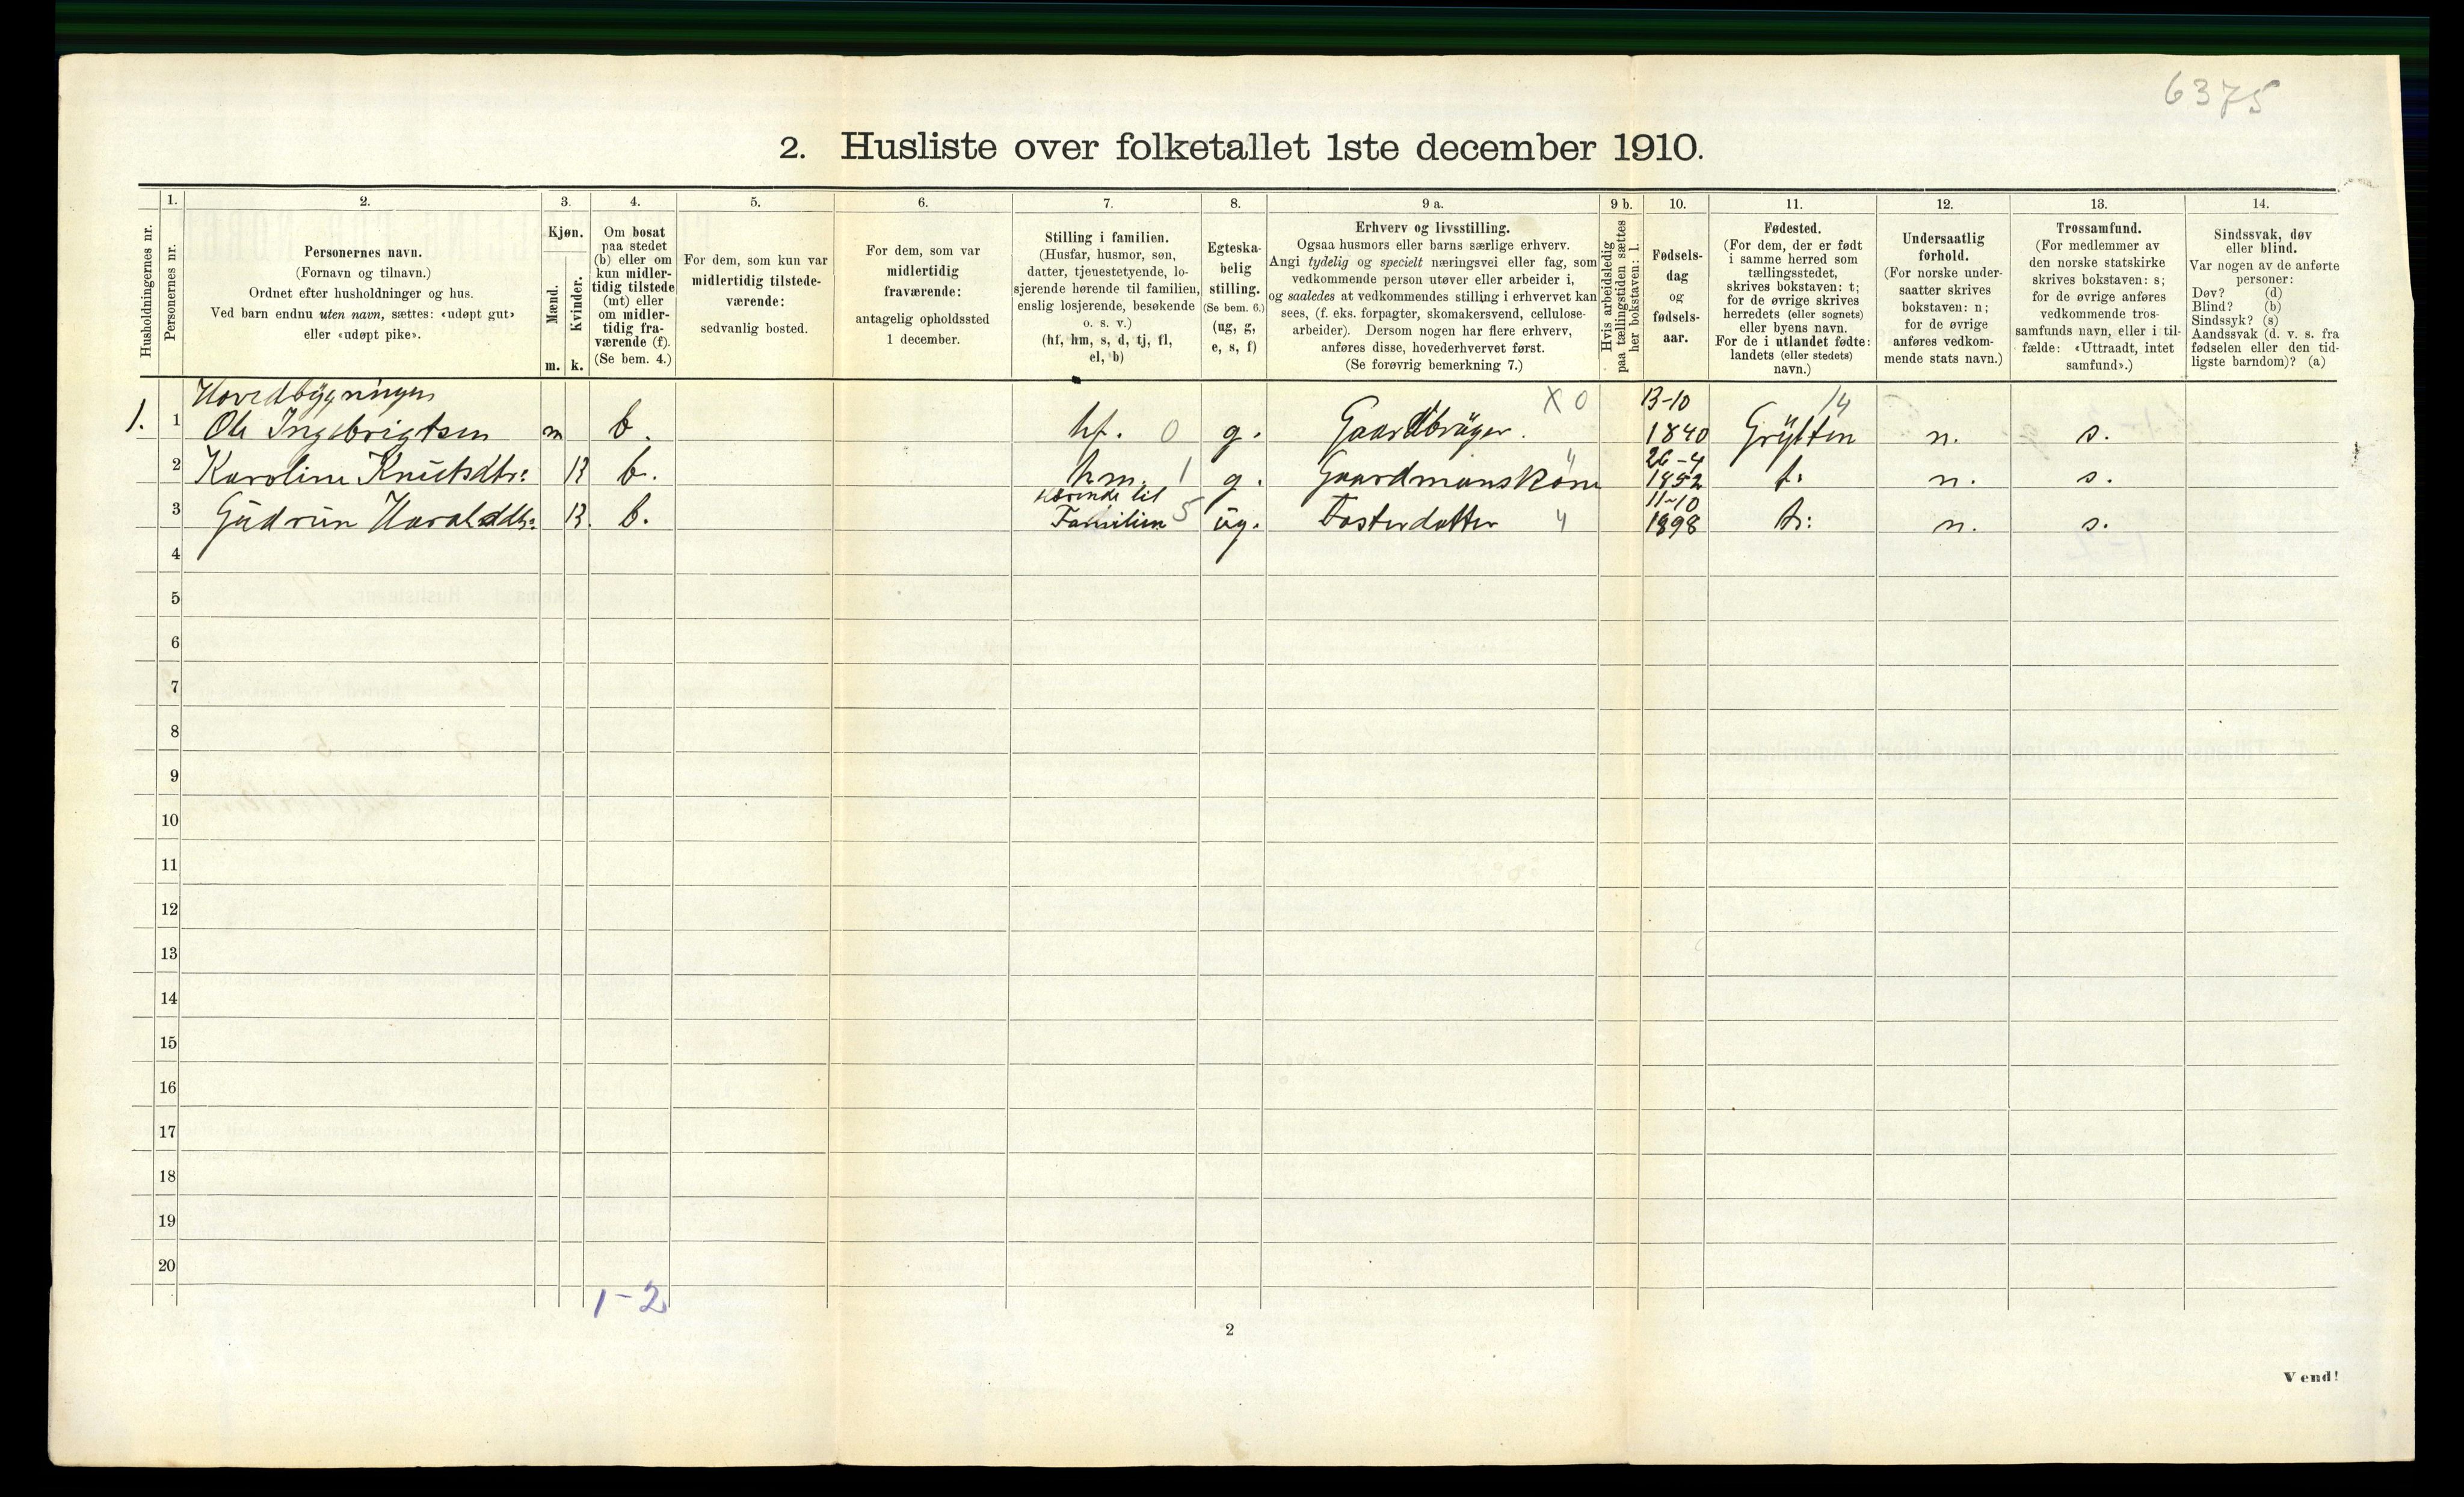 6375
2. Husliste over folketallet 1ste december 1910.
Husholdningernes nr.
1.
Personernes nr.
2.
Personernes navn.
(Fornavn og tilnavn.)
Ordnet efter husholdninger og hus.
Ved barn endnu uten navn, sættes: «udøpt gut»
eller «udøpt pike».
3.
Kjøn.
Mænd.
Kvinder.
m.
k.
4.
Om bosat
paa stedet
(b) eller om
kun midler-
tidig tilstede
(mt) eller
om midler-
tidig fra-
værende (f).
(Se bem. 4.)
5.
For dem, som kun var
midlertidig tilstede-
værende:
sedvanlig bosted.
6.
For dem, som var
midlertidig
fraværende:
antagelig opholdssted
1 december.
7.
Stilling i familien.
(Husfar, husmor, søn,
datter, tjenestetyende, lo-
sjerende hørende til familien,
enslig losjerende, besøkende
o. s. v.)
(hf, hm, s, d, tj, fl,
el, b)
8.
Egteska-
belig
stilling.
(Se bem. 6.)
(ug, g,
e, s, f)
9 a.
Erhverv og livsstilling.
Ogsaa husmors eller barns særlige erhverv.
Angi tydelig og specielt næringsvei eller fag, som
vedkommende person utøver eller arbeider i,
og saaledes at vedkommendes stilling i erhvervet kan
sees, (f. eks. forpagter, skomakersvend, cellulose-
arbeider). Dersom nogen har flere erhverv,
anføres disse, hovederhvervet først.
(Se forøvrig bemerkning 7.)
9 b.
Hvis arbeidsledig
paa tællingstiden sættes
her bokstaven: l.
10.
Fødsels-
dag
og
fødsels-
aar.
11.
Fødested.
(For dem, der er født
i samme herred som
tællingsstedet,
skrives bokstaven: t;
for de øvrige skrives
herredets (eller sognets)
eller byens navn.
For de i utlandet fødte:
landets (eller stedets)
navn.)
12.
Undersaatlig
forhold.
(For norske under-
saatter skrives
bokstaven: n;
for de øvrige
anføres vedkom-
mende stats navn.)
13.
Trossamfund.
(For medlemmer av
den norske statskirke
skrives bokstaven: s;
for de øvrige anføres
vedkommende tros-
samfunds navn, eller i til-
fælde: «Uttraadt, intet
samfund».)
14.
Sindssvak, døv
eller blind.
Var nogen av de anførte
personer:
Døv? (d)
Blind? (b)
Sindssyk? (s)
Aandssvak (d. v. s. fra
fødselen eller den tid-
ligste barndom)? (a)
Hovedbygningen X 0 13-10 14
1. 1 Ole Ingebrigtsen m b. hf. 0 g. Gaardbruger. 1840 Grytten n. s.
26-4
2 Karoline Knutsdtr: K b. hm. 1 g. Gaardmanskone 4 1852 t. n. s.
Hørende til 11-10
3 Gudrun Haraldsdtr: K. b. Familien 5 ug. Fosterdatter 4 1898 t: n. s.
4
5
6
7
8
9
10
11
12
13
14
15
16
17
18
19
20
1-2
2
Vend!